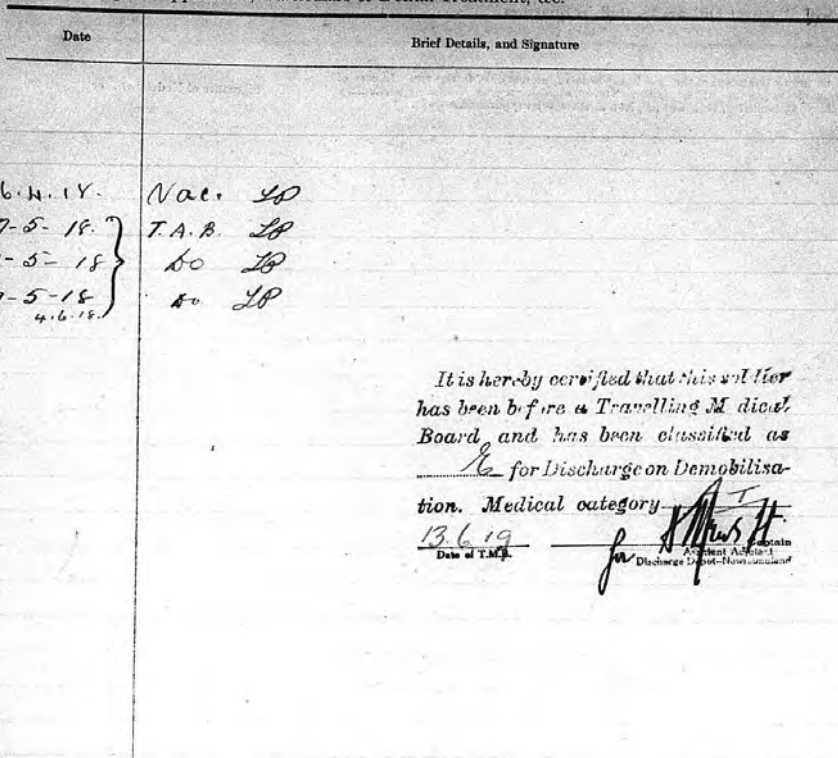 Date Brief Details, and Signature
6.4.18. Vac. LP
7-5-18. T.A.B. LP
-5-18 Do LP
-5-18 Do LP
4.6.18.
It is hereby certified that this soldier
has been before a Travelling M dical
Board and has been classified as
E for Discharge on Demobilisa-
tion. Medical category I
13.6.19 Captain
Date of T.M.B. for Assistant Adjutant
Discharge Depot-Newfoundland